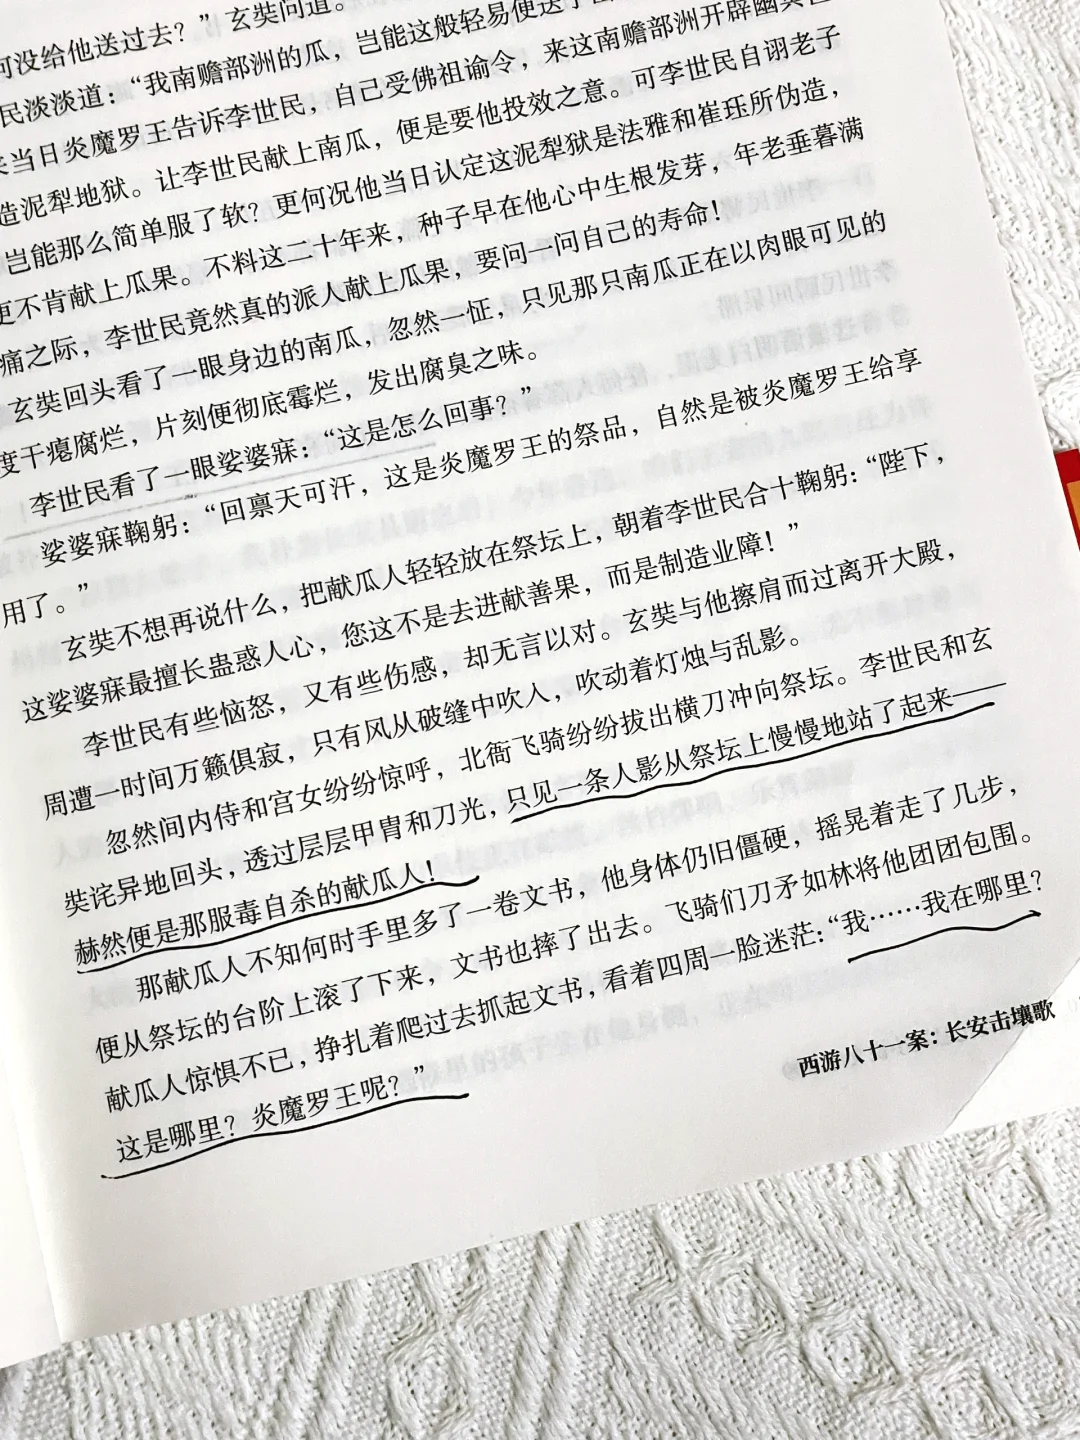 何没给他送过去？”玄奘问道。
民淡淡道：“我南赡部洲的瓜，岂能这般轻易便送予
来当日炎魔罗王告诉李世民，自己受佛祖谕令，来这南赡部洲开辟幽冥
造泥犁地狱。让李世民献上南瓜，便是要他投效之意。可李世民自诩老子
岂能那么简单服了软？更何况他当日认定这泥犁狱是法雅和崔珏所伪造，
更不肯献上瓜果。不料这二十年来，种子早在他心中生根发芽，年老垂暮满
痛之际，李世民竟然真的派人献上瓜果，要问一问自己的寿命！
玄奘回头看了一眼身边的南瓜，忽然一怔，只见那只南瓜正在以肉眼可见的
度干瘪腐烂，片刻便彻底霉烂，发出腐臭之味。
李世民看了一眼娑婆寐：“这是怎么回事？”
娑婆寐鞠躬：“回禀天可汗，这是炎魔罗王的祭品，自然是被炎魔罗王给享
用了。”
玄奘不想再说什么，把献瓜人轻轻放在祭坛上，朝着李世民合十鞠躬：“陛下，
这娑婆寐最擅长蛊惑人心，您这不是去进献善果，而是制造业障！”
李世民有些恼怒，又有些伤感，却无言以对。玄奘与他擦肩而过离开大殿，
周遭一时间万籁俱寂，只有风从破缝中吹人，吹动着灯烛与乱影。
忽然间内侍和宫女纷纷惊呼，北衙飞骑纷纷拔出横刀冲向祭坛。李世民和玄
奘诧异地回头，透过层层甲胄和刀光，只见一条人影从祭坛上慢慢地站了起来——
赫然便是那服毒自杀的献瓜人！
那献瓜人不知何时手里多了一卷文书，他身体仍旧僵硬，摇晃着走了几步，
便从祭坛的台阶上滚了下来，文书也摔了出去。飞骑们刀矛如林将他团团包围。
献瓜人惊惧不已，挣扎着爬过去抓起文书，看着四周一脸迷茫：“我……我在哪里？
这是哪里？炎魔罗王呢？”
西游八十一案：长安击壤歌